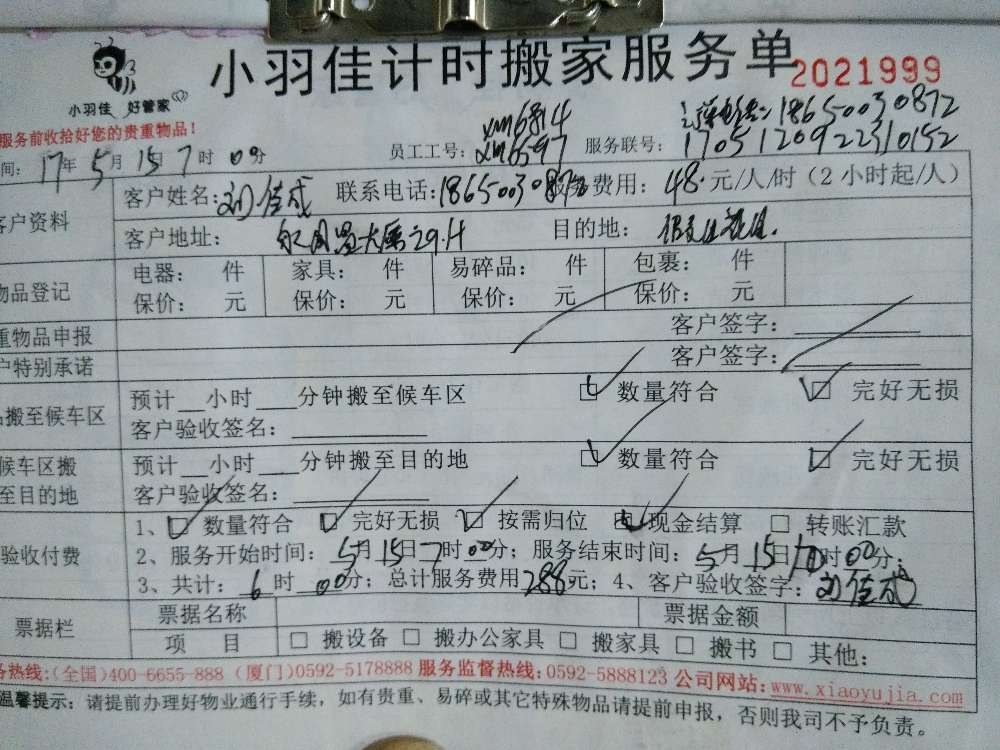 小羽佳计时搬家服务单 2021999
小羽佳 好管家
服务前收拾好您的贵重物品！
员工工号：XM6814 XM6597 服务联号：18650030872
1705120922310152
间：17年5月15日7时00分
客户资料
客户姓名：刘佳成 联系电话：18650030872 费用：48.元/人/时（2小时起/人）
客户地址： 大厦29.H 目的地：
物品登记
电器： 件 家具： 件 易碎品： 件 包裹： 件
保价： 元 保价： 元 保价： 元 保价： 元
重物品申报 客户签字：
户特别承诺 客户签字：
搬至候车区
预计__小时___分钟搬至候车区 数量符合 完好无损
客户验收签名：
候车区搬至目的地
预计__小时___分钟搬至目的地 数量符合 完好无损
客户验收签名：
验收付费
1、 数量符合 完好无损 按需归位 现金结算 转账汇款
2、服务开始时间：5月15日7时00分；服务结束时间：5月15日10时00分；
3、共计：6时00分；总计服务费用288元；4、客户验收签字：刘佳成
票据栏
票据名称 票据金额
项 目 搬设备 搬办公家具 搬家具 搬书 其他：
务热线：(全国)400-6655-888 (厦门)0592-5178888 服务监督热线：0592-5888123 公司网站：www.xiaoyujia.com
温馨提示：请提前办理好物业通行手续，如有贵重、易碎或其它特殊物品请提前申报，否则我司不予负责。